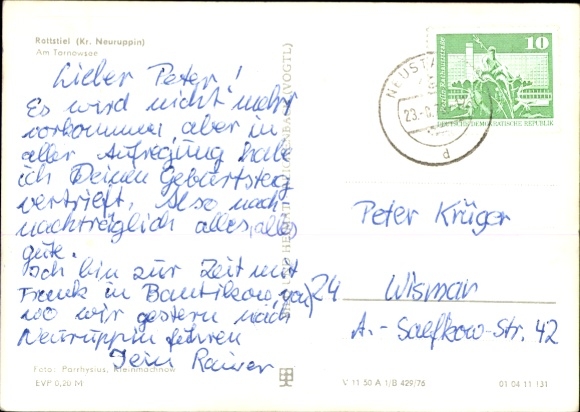 Rottstiel (Kr. Neuruppin)
Am Tornowsee
Lieber Peter!
Es wird nicht mehr
vorkommen, aber in
aller Aufregung habe
ich Deinen Geburtstag
vertrieft. Also noch
nachträglich alles, alles
gute.
Ich bin zur Zeit mit
Frank in Bantikow, von
wo wir gestern nach
Neuruppin fuhren
Dein Rainer
Foto: Parrhysius, Kleinmachnow
EVP 0,20 M
10
Berlin-Rathausstraße
DEUTSCHE DEMOKRATISCHE REPUBLIK
NEUSTA
23.-8.
d
Peter Krüger
24 Wismar
A.-Saefkow-Str. 42
V 11 50 A 1/B 429/76
01 04 11 131
(VOGTL)